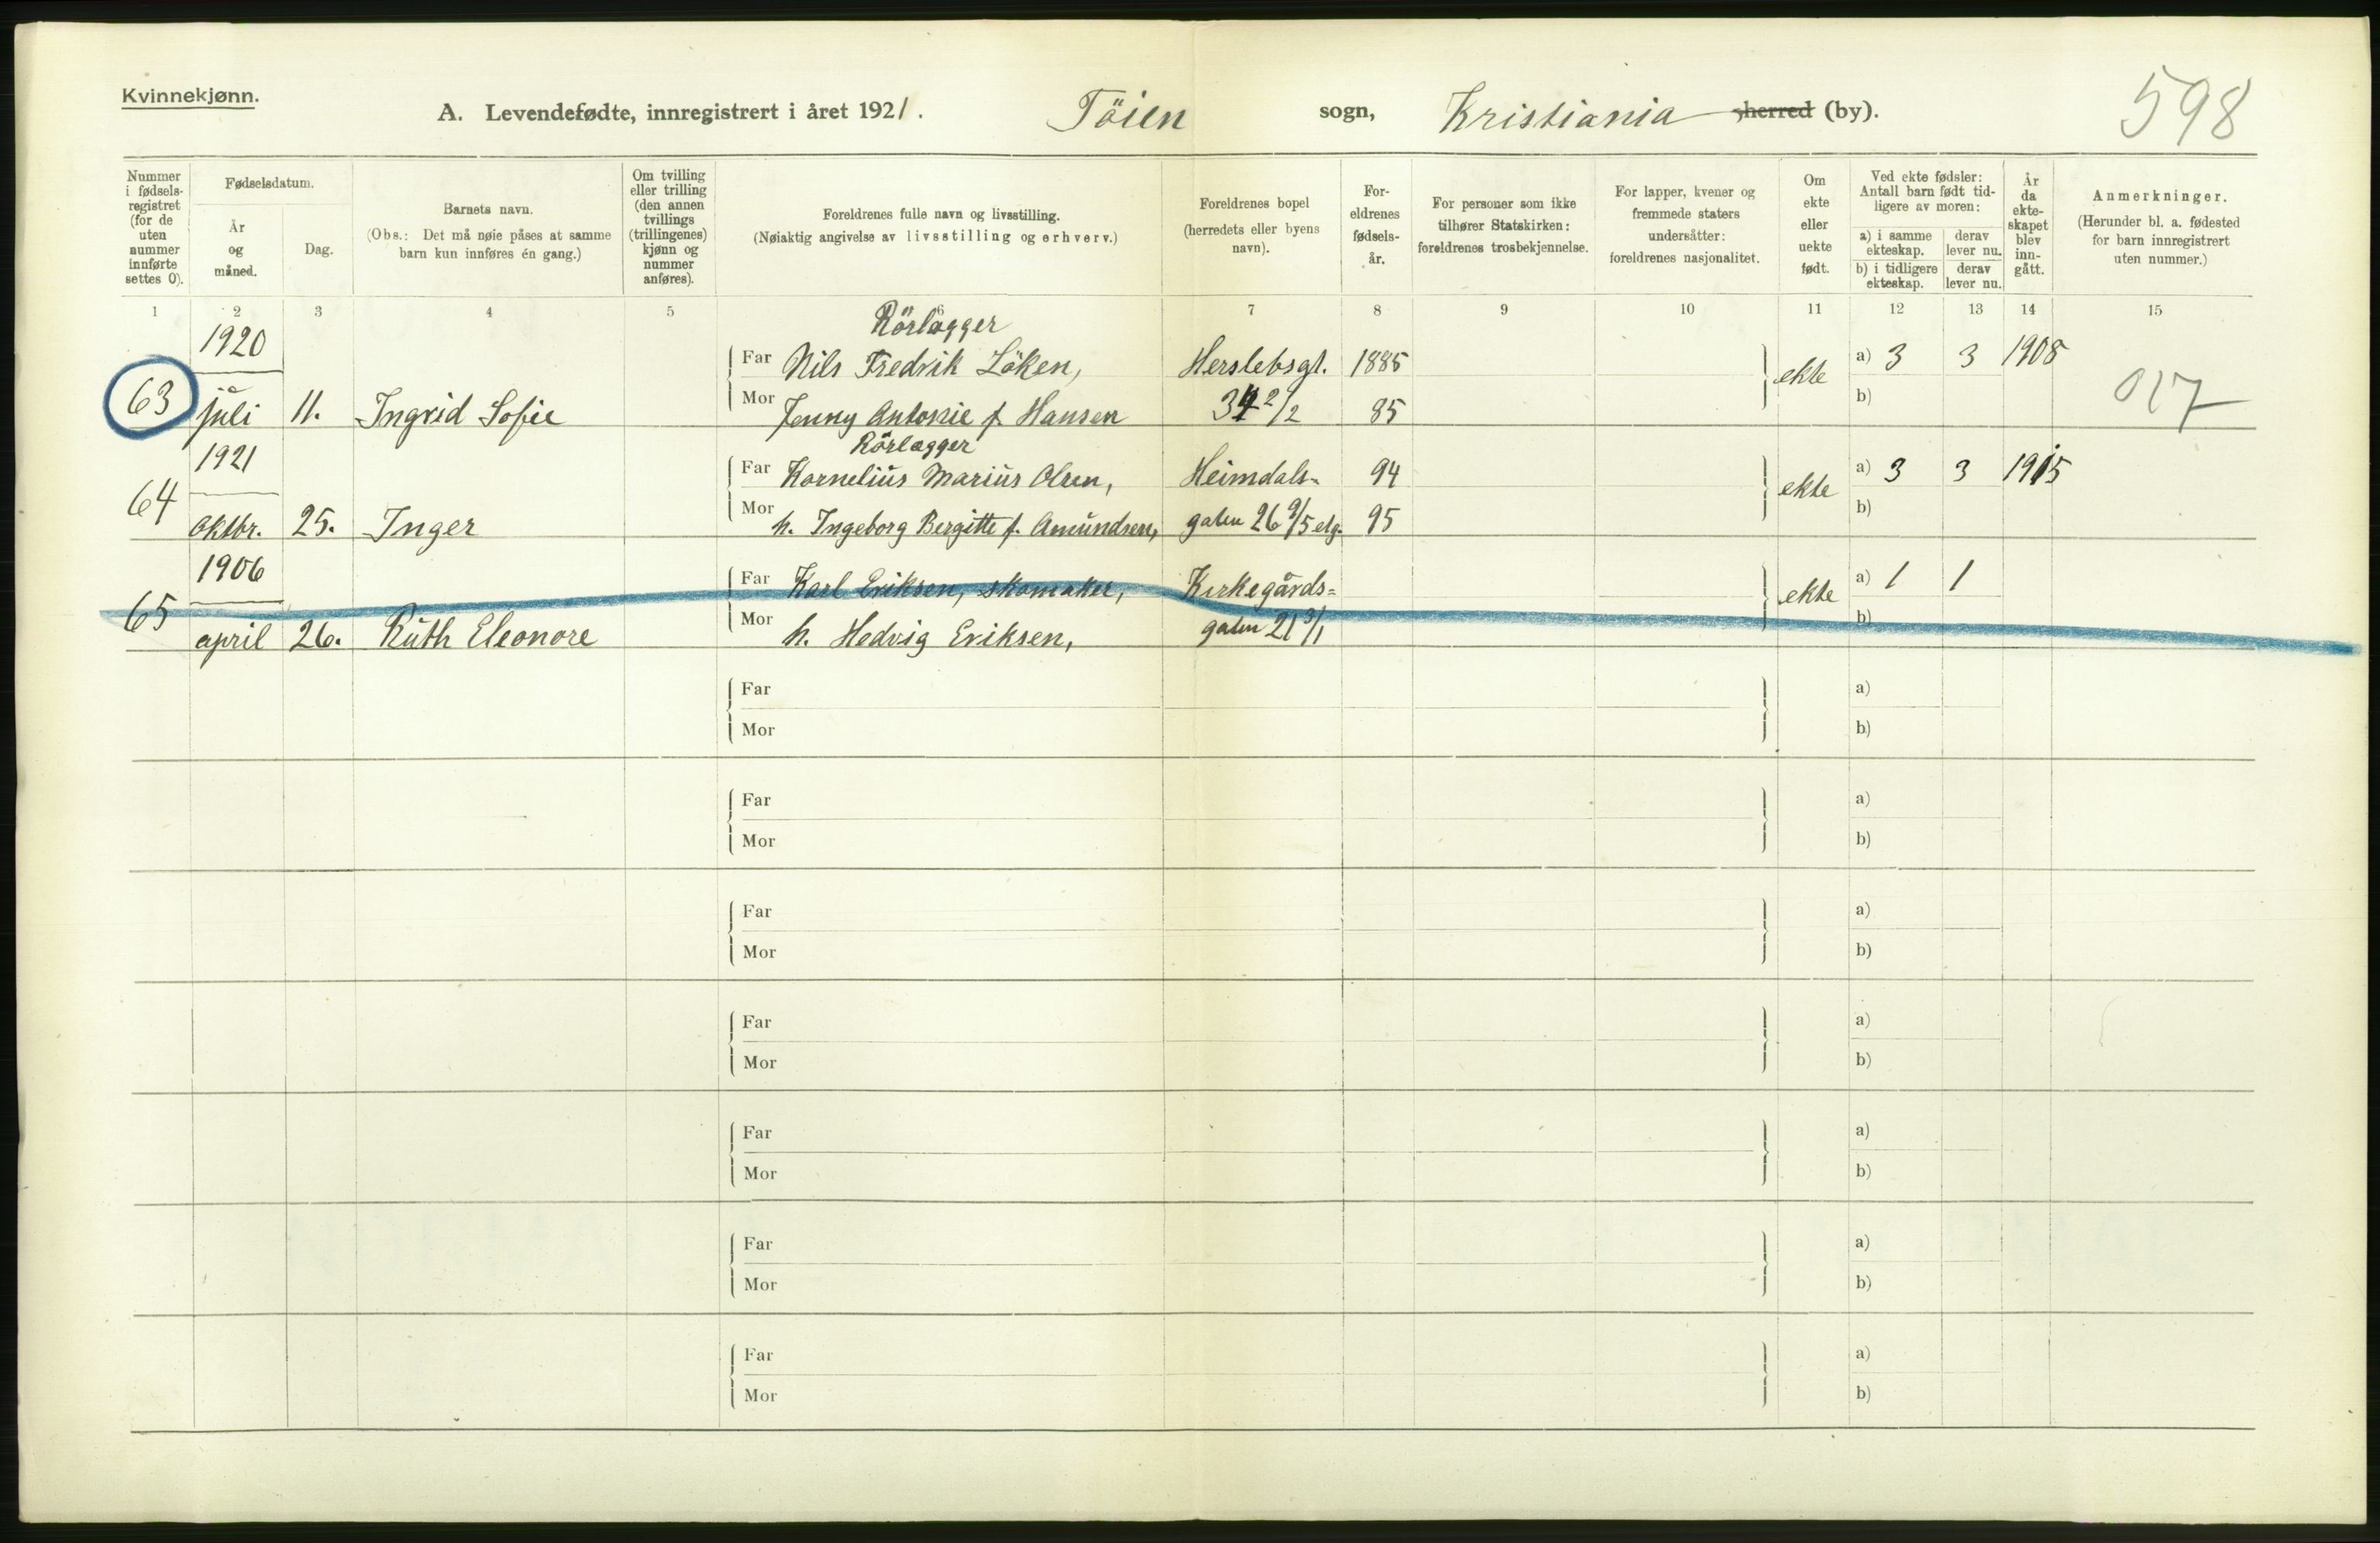 Kvinnekjønn.
A. Levendefødte, innregistrert i året 1921. Töien sogn, Kristiania herred (by). 598
Nummer i fødsels-registret (for de uten nummer innførte settes 0).
Fødselsdatum.
År og måned.
Dag.
Barnets navn.
(Obs.: Det må nøie påses at samme barn kun innføres én gang.)
Om tvilling eller trilling (den annen tvillings (trillingenes) kjønn og nummer anføres).
Foreldrenes fulle navn og livsstilling.
(Nøiaktig angivelse av livsstilling og erhverv.)
Foreldrenes bopel (herredets eller byens navn).
For-eldrenes fødsels-år.
For personer som ikke tilhører Statskirken: foreldrenes trosbekjennelse.
For lapper, kvener og fremmede staters undersåtter: foreldrenes nasjonalitet.
Om ekte eller uekte født.
Ved ekte fødsler: Antall barn født tid-ligere av moren:
a) i samme ekteskap. derav lever nu.
b) i tidligere ekteskap. derav lever nu.
År da ekte-skapet blev inn-gått.
Anmerkninger.
(Herunder bl. a. fødested for barn innregistrert uten nummer.)
1 2 3 4 5 6 7 8 9 10 11 12 13 14 15
Rörlægger
1920 Far Nils Fredrik Löken, Herslebsgt. 1885 ekte a) 3 3 1908
63 juli 11. Ingrid Sofie Mor Jenny Antonie f. Hansen 2/2 85 b) 017
Rörlægger
1921 Far Kornelius Marius Olsen, Heimdals- 94 ekte a) 3 3 1915
64 Oktbr. 25. Inger Mor h. Ingeborg Bergitte f. Amundsen, galen 26 9/5 etg. 95 b)
1906 Far Karl Eriksen, skomaker, Kirkegårds= ekte a) 1 1
65 april 26. Ruth Eleonore Mor h. Hedvig Eriksen, galen 21 3/1 b)
Far a)
Mor b)
Far a)
Mor b)
Far a)
Mor b)
Far a)
Mor b)
Far a)
Mor b)
Far a)
Mor b)
Far a)
Mor b)